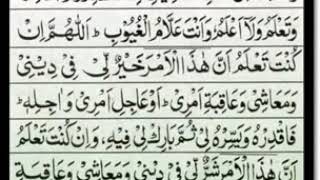 وَتَعْلَمُ وَلَآ اَعْلَمُ وَاَنْتَ عَلَّامُ الْغُيُوْبِ ؕ اَللّٰهُمَّ اِنْ
كُنْتَ تَعْلَمُ اَنَّ هٰذَا الْاَمْرَ خَيْرٌ لِّيْ فِيْ دِيْنِيْ
وَمَعَاشِيْ وَعَاقِبَةِ اَمْرِيْ ؕ اَوْ عَاجِلِ اَمْرِيْ وَاٰجِلِهٖ ؕ
فَاقْدِرْهُ وَيَسِّرْهُ لِيْ ثُمَّ بَارِكْ لِيْ فِيْهِ ؕ وَاِنْ كُنْتَ تَعْلَمُ
اَنَّ هٰذَا الْاَمْرَ شَرٌّ لِّيْ فِيْ دِيْنِيْ وَمَعَاشِيْ وَعَاقِبَةِ